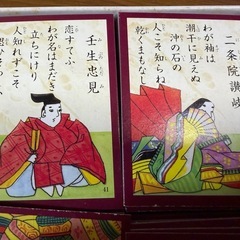 二条院讃岐
わが袖は
潮干に見えぬ
沖の石の
人こそ知らね
乾くまもなし
壬生忠見
恋すてふ
わが名はまだき
立ちにけり
人知れずこそ
41